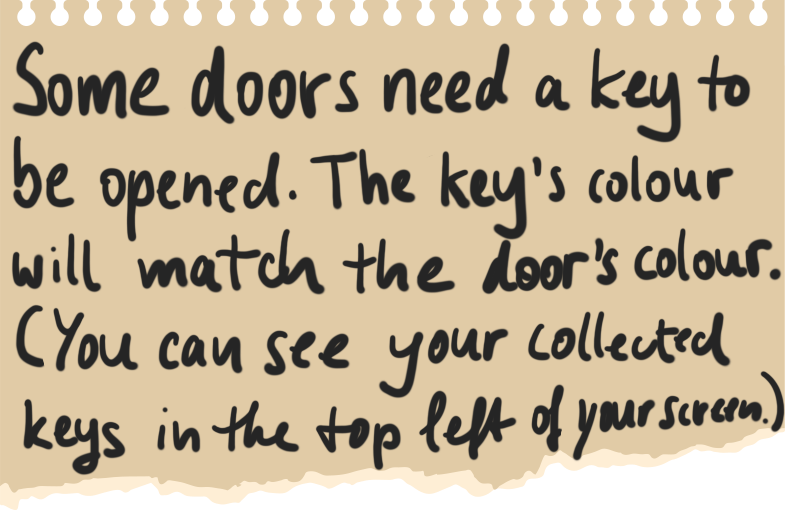 Some doors need a key to
be opened. The key's colour
will match the door's colour.
(You can see your collected
keys in the top left of your screen.)